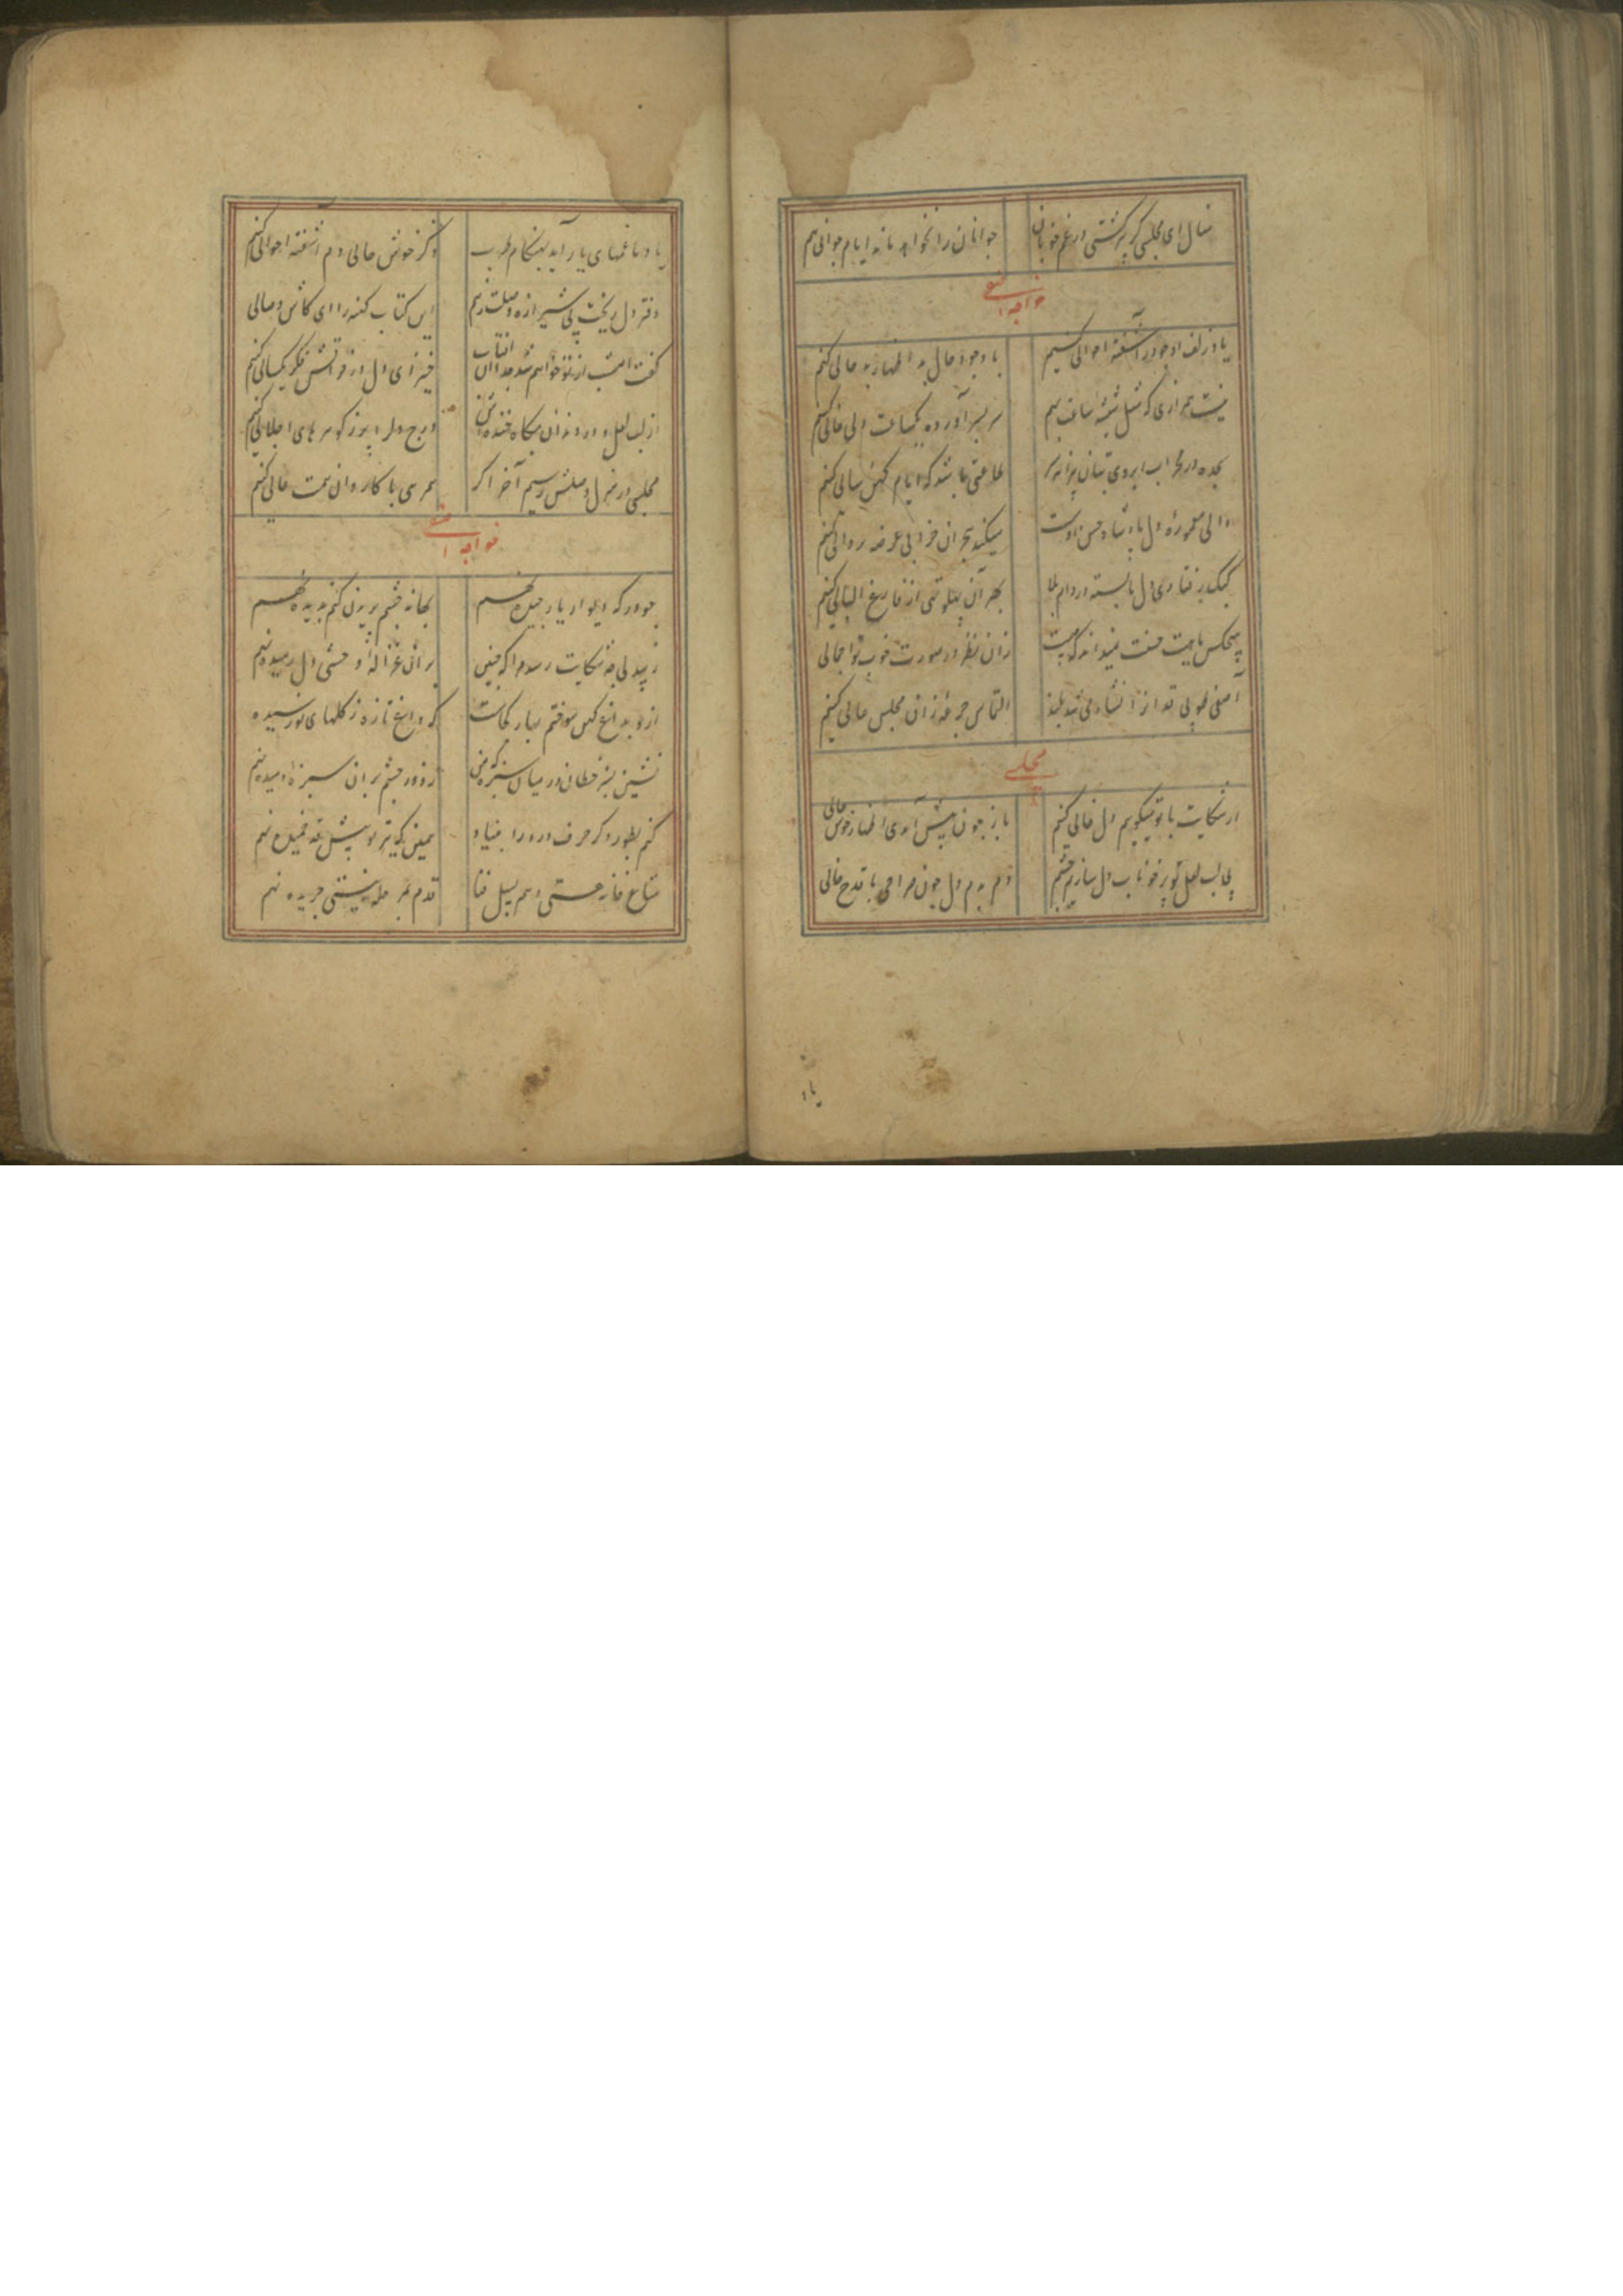 منال ای مجلسی گر پیر گشتی در غم خوبان
جوانان را نخواهد ماند ایام جوانی هم
خواجه آصفی
یاد زلف او چو در آشفته احوالی کنیم
با وجود حال بد اظهار بد حالی کنم
نیست همرازی که مثل شیشه ساعت بهم
سر بسر آورده یکساعت دلی خالی کنم
سجده در محراب ابروی بتان پیرانه سر
طاعتی باشد که ایام کهن سالی کنم
والی معموره دل پادشاه حسن اوست
میکند بحران خرابی عرضه بر والی کنم
کبک رفتاری دل پا بسته در دام بلا
بهر آن پهلو تهی از فارغ البالی کنم
هیچکس ماهیت حسنت نمیداند که چیست
زان نظر در صورت خوب تو اجمالی
آصفی طوبی قد او از نشاء می شد بلند
التماس جرعه زان مجلس عالی کنیم
مجلسی
از شکایت با تو میگویم دل خالی کنیم
باز چون پیش آمدی اظهار خوش حالی
بی لب لعل تو پر خوناب دل سازیم چشم
دم بدم دل چون صراحی با قدح خالی
یاد
یاد ما غمهای یار آید بهنگام طرب
گر ز خوش حالی دم آشفته احوالی کنم
دفتر دل ریخت بی شیرازه وصلت ز هم
این کتاب کهنه را ای کاش وصالی
گفت امشب از تو خواهم شد جدا آن آفتاب
خیز ای دل در فراقش فکر یکسالی کنم
از لب لعل و در دندان بگاه خنده اش
درج دل را پر ز گوهرهای اجلالی کنیم
مجلسی در منزل وصلش رسیم آخر اگر
همرهی با کاروان همت عالی کنم
خواجه آصفی
چو در که دیوار یار جیده نهم
بهانه چشم پریدن کنم بدیده نهم
ز بیدلی چه شکایت رسد مرا که چنین
بر آن غزاله وحشی دل رمیده نهم
ازو بداغ کهن سوختم بهار کجاست
که داغ تازه ز گلهای نو رسیده
نشین بسبز خطان در میان سبزه که من
ز دور چشم بر آن سبزه دمیده نهم
کنم بطور دگر حرف درد را بنیاد
همین که تیر تو پیش قد خمیده نهم
متاع خانه هستی دهم بسیل فنا
قدم بمرحله نیستی جریده نهم